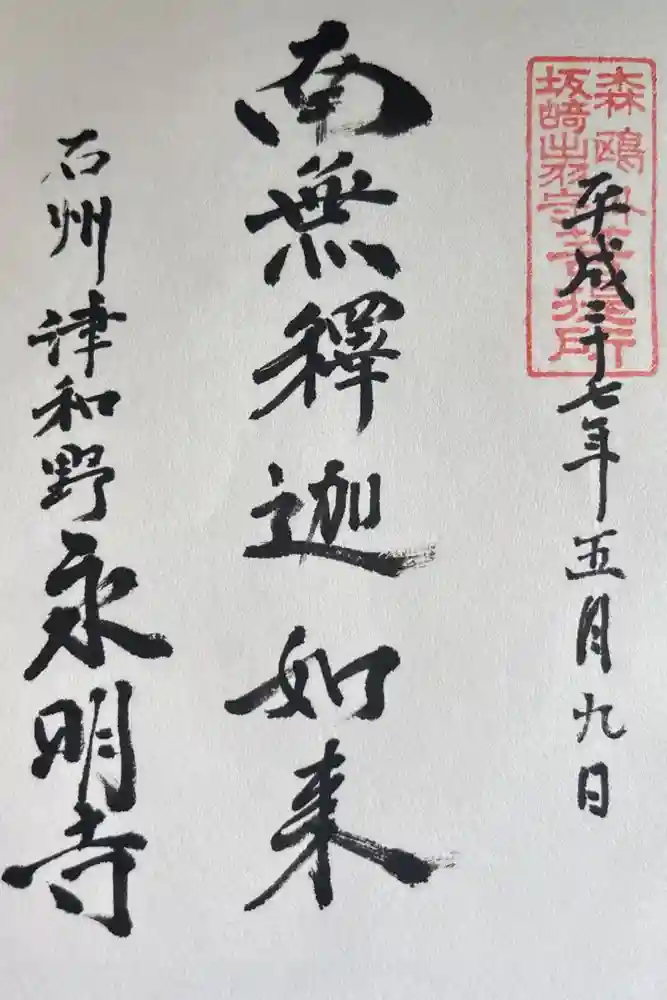 森鴎外
坂﨑出羽守菩提所
平成二十七年五月九日
南無釋迦如来
石州津和野永明寺